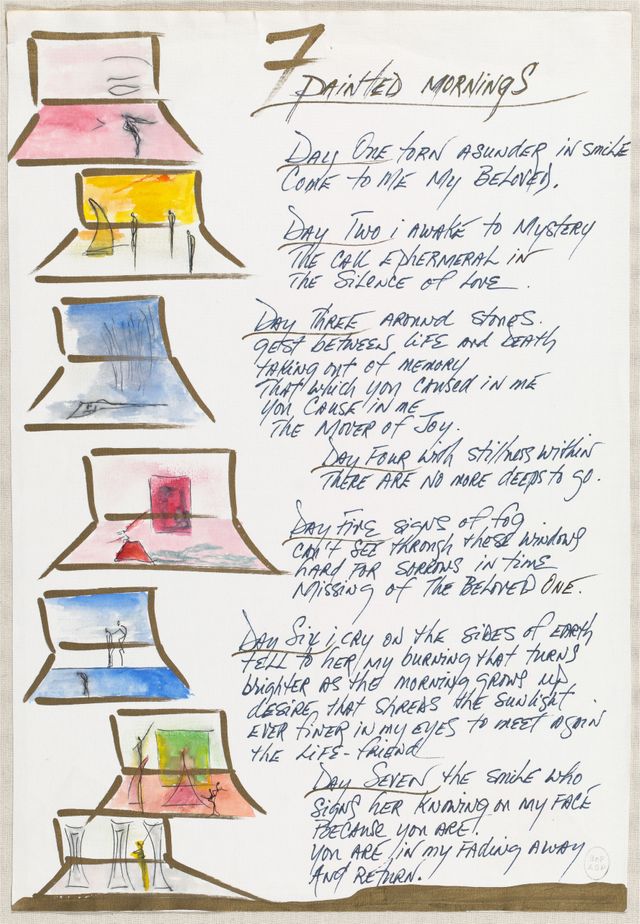 7
PAINTED MORNINGS
DAY ONE TORN ASUNDER IN SMILE
COME TO ME MY BELOVED.
DAY TWO I AWAKE TO MYSTERY
THE CALL EPHERMERAL IN
THE SILENCE OF LOVE.
DAY THREE AROUND STONES.
GETST BETWEEN LIFE AND DEATH
TAKING OUT OF MEMORY
THAT WHICH YOU CAUSED IN ME
YOU CAUSE IN ME
THE MOVER OF JOY.
DAY FOUR WITH STILLNESS WITHIN
THERE ARE NO MORE DEEPS TO GO.
DAY FIVE SIGNS OF FOG
CAN'T SEE THROUGH THESE WINDOWS
HARD FOR SORROWS IN TIME
MISSING OF THE BELOVED ONE.
DAY SIX I CRY ON THE SIDES OF EARTH
TELL TO HER MY BURNING THAT TURNS
BRIGHTER AS THE MORNING GROWS UP
DESIRE THAT SHREDS THE SUNLIGHT
EVER FINER IN MY EYES TO MEET AGAIN
THE LIFE-FRIEND
DAY SEVEN THE SMILE WHO
SIGNS HER KNOWING ON MY FACE
BECAUSE YOU ARE.
YOU ARE IN MY FADING AWAY
AND RETURN.